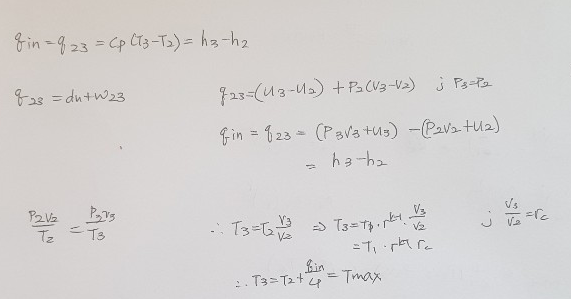 qin = q23 = Cp(T3-T2) = h3-h2
q23 = du+w23
q23=(u3-u2) + P2(v3-v2) ; P3=P2
qin = q23 = (P3v3+u3) - (P2v2+u2)
= h3-h2
P2v2/T2 = P3v3/T3
∴ T3=T2 v3/v2 ⇒ T3=T1·r^k-1·v3/v2 ; v3/v2=rc
=T1·r^k-1 rc
∴ T3=T2+qin/Cp=Tmax